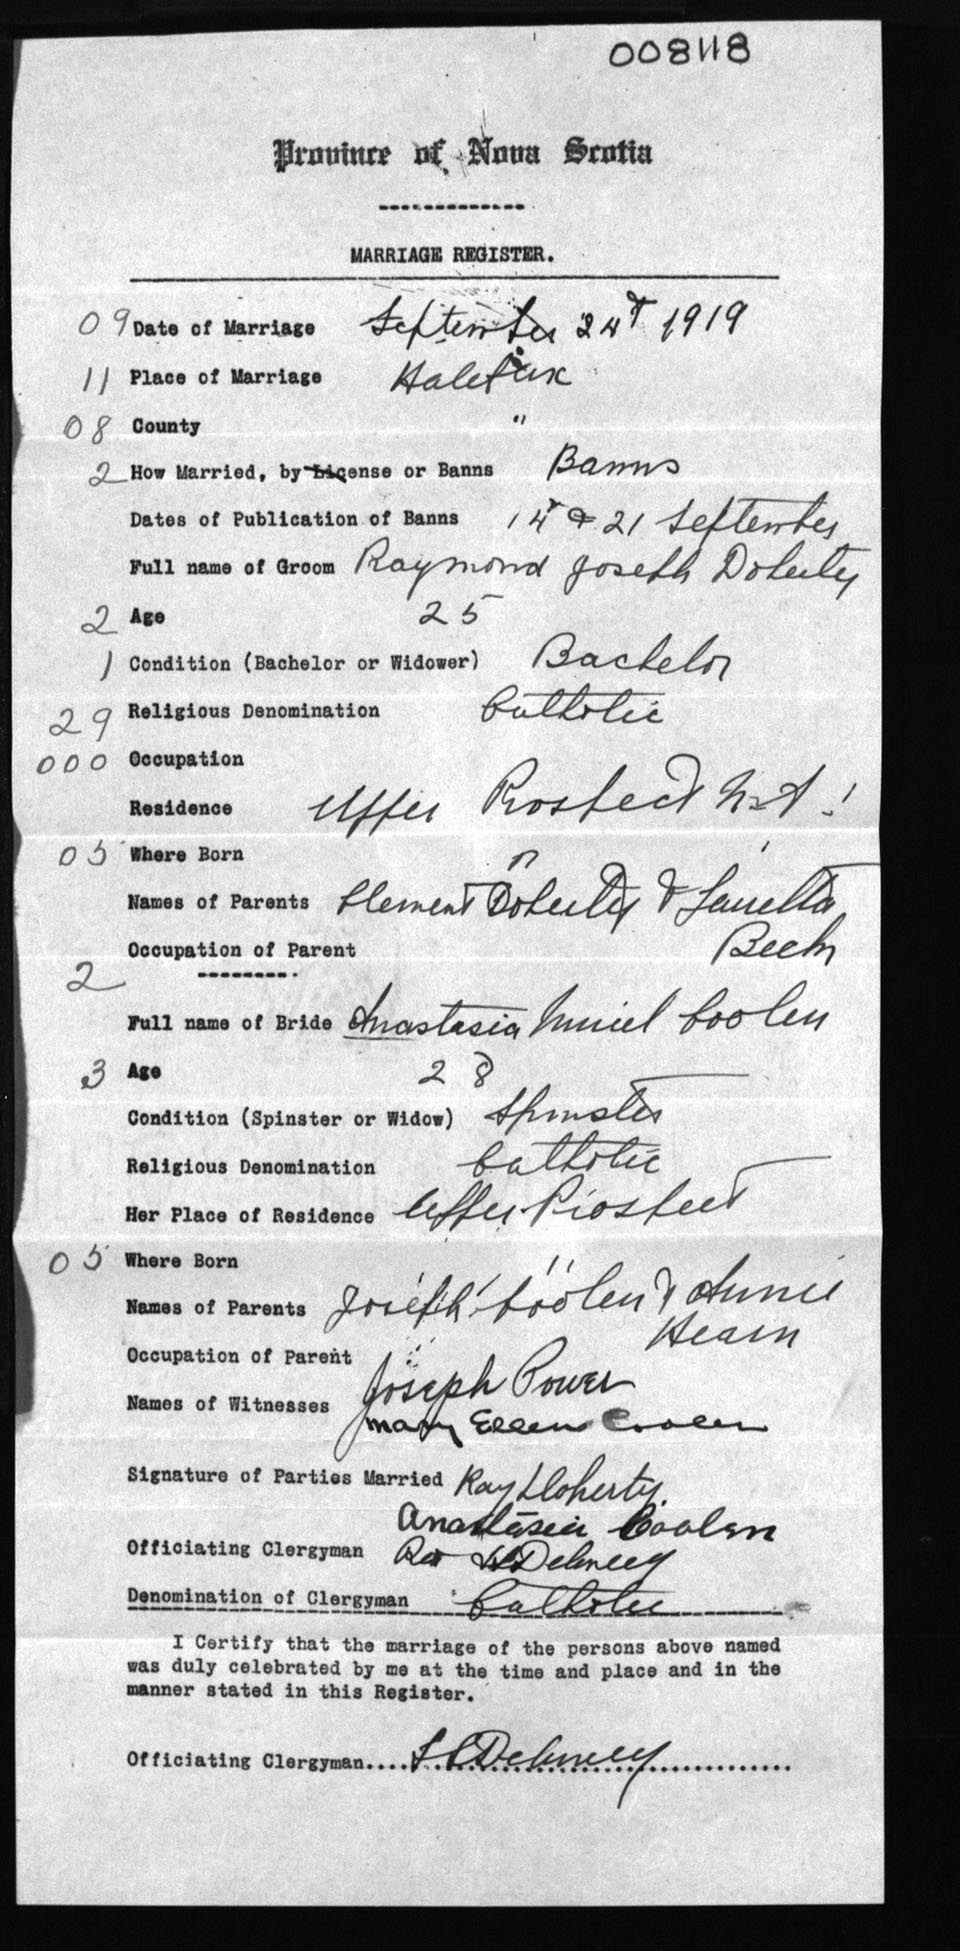 008118
Province of Nova Scotia
MARRIAGE REGISTER.
09 Date of Marriage September 24th 1919
11 Place of Marriage Halifax
08 County "
2 How Married, by License or Banns Banns
Dates of Publication of Banns 14 & 21 September
Full name of Groom Raymond Joseph Doherty
2 Age 25
1 Condition (Bachelor or Widower) Bachelor
29 Religious Denomination Catholic
000 Occupation
Residence Upper Prospect
05 Where Born "
Names of Parents Clement Doherty &
Occupation of Parent
2
Full name of Bride Anastasia Muriel Coolen
3 Age 28
Condition (Spinster or Widow) Spinster
Religious Denomination Catholic
Her Place of Residence Upper Prospect
05 Where Born "
Names of Parents Joseph Coolen & Annie
Hearn
Occupation of Parent
Joseph Power
Names of Witnesses
Mary Ellen Coolen
Signature of Parties Married Ray Doherty
Anastasia Coolen
Officiating Clergyman Rev
Denomination of Clergyman Catholic
I Certify that the marriage of the persons above named
was duly celebrated by me at the time and place and in the
manner stated in this Register.
Officiating Clergyman....